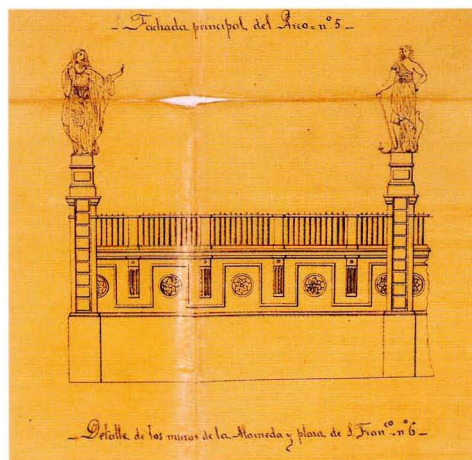 - Fachada principal del Arco - nº 5 -
- Detalle de los muros de la Alameda y plaza de S. Franco. nº 6 -